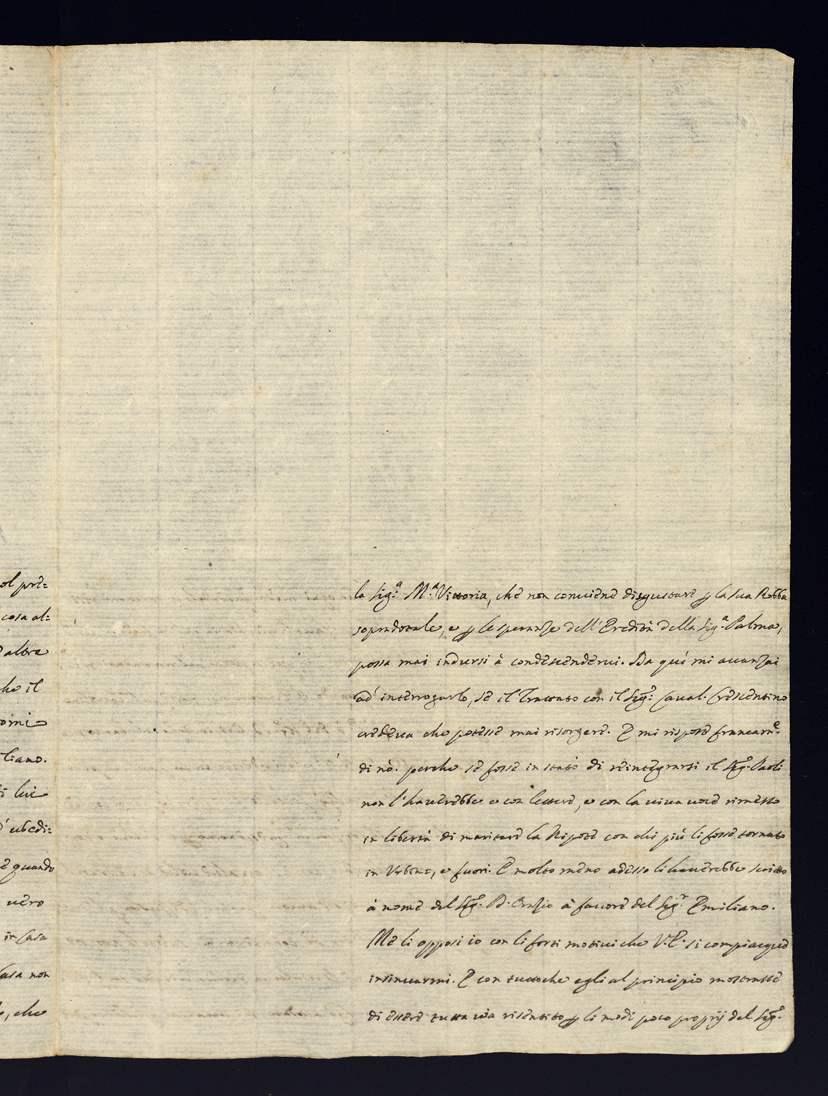 ol pre=
cosa al=
altre
he il
orni
liano.
i lui
d'ubedi=
e quando
vero
in Casa
Casa non
o, che
la Sig.ª M.ª Vittoria, che non conviene disgustare p la sua Robba
sopradotale, e p le speranze dell'Eredità della Sig.ª Palma,
possa mai indursi à condescendervi. Da quì mi avanzai
ad' interrogarlo, se il Trattato con il Sig.r Caval.r Crescentino
credeva che potesse mai risorgere. E mi rispose francam.e
di nò. perche se fosse in stato di reintegrarsi il Sig.r Paoli
non l'haverebbe e con lettere, e con la viva voce rimesso
in libertà di maritare la Nipote con chi più li fosse tornato
in Urbino, e fuori. E molto meno adesso li haverebbe scritto
à nome del Sig.r D. Orazio à favore del Sig.r Emiliano.
Me li opposi io con li forti motivi che V.E. si compiacque
insinuarmi. E con tutto che egli al principio mostrasse
di essere tutta via risentito p li modi poco proprij del Sig.r